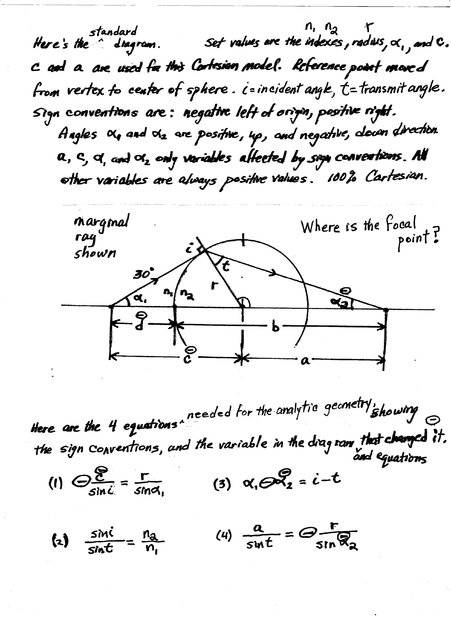 standard n₁ n₂ r
Here's the ^ diagram. Set values are the indexes, radius, α₁, and c.
c and a are used for this Cartesian model. Reference point moved
from vertex to center of sphere. i=incident angle, t=transmit angle.
Sign conventions are: negative left of origin, positive right.
Angles α₁ and α₂ are positive, up, and negative, down direction
a, c, α₁ and α₂ only variables affected by sign conventions. All
other variables are always positive values. 100% Cartesian.
marginal
ray
shown
Where is the focal
point?
i
30°
t
r
α₁ n₁ n₂
⊖
α₂
⊖
d
b
⊖
c
a
Here are the 4 equations ^ needed for the analytic geometry, showing
⊖
the sign conventions, and the variable in the diagram that changed it.
^ and equations
(1) ⊖c⊖/sin i = r/sin α₁
(3) α₁ ⊖ α₂⊖ = i - t
(2) sin i/sin t = n₂/n₁
(4) a/sin t = ⊖ r/sin α₂⊖